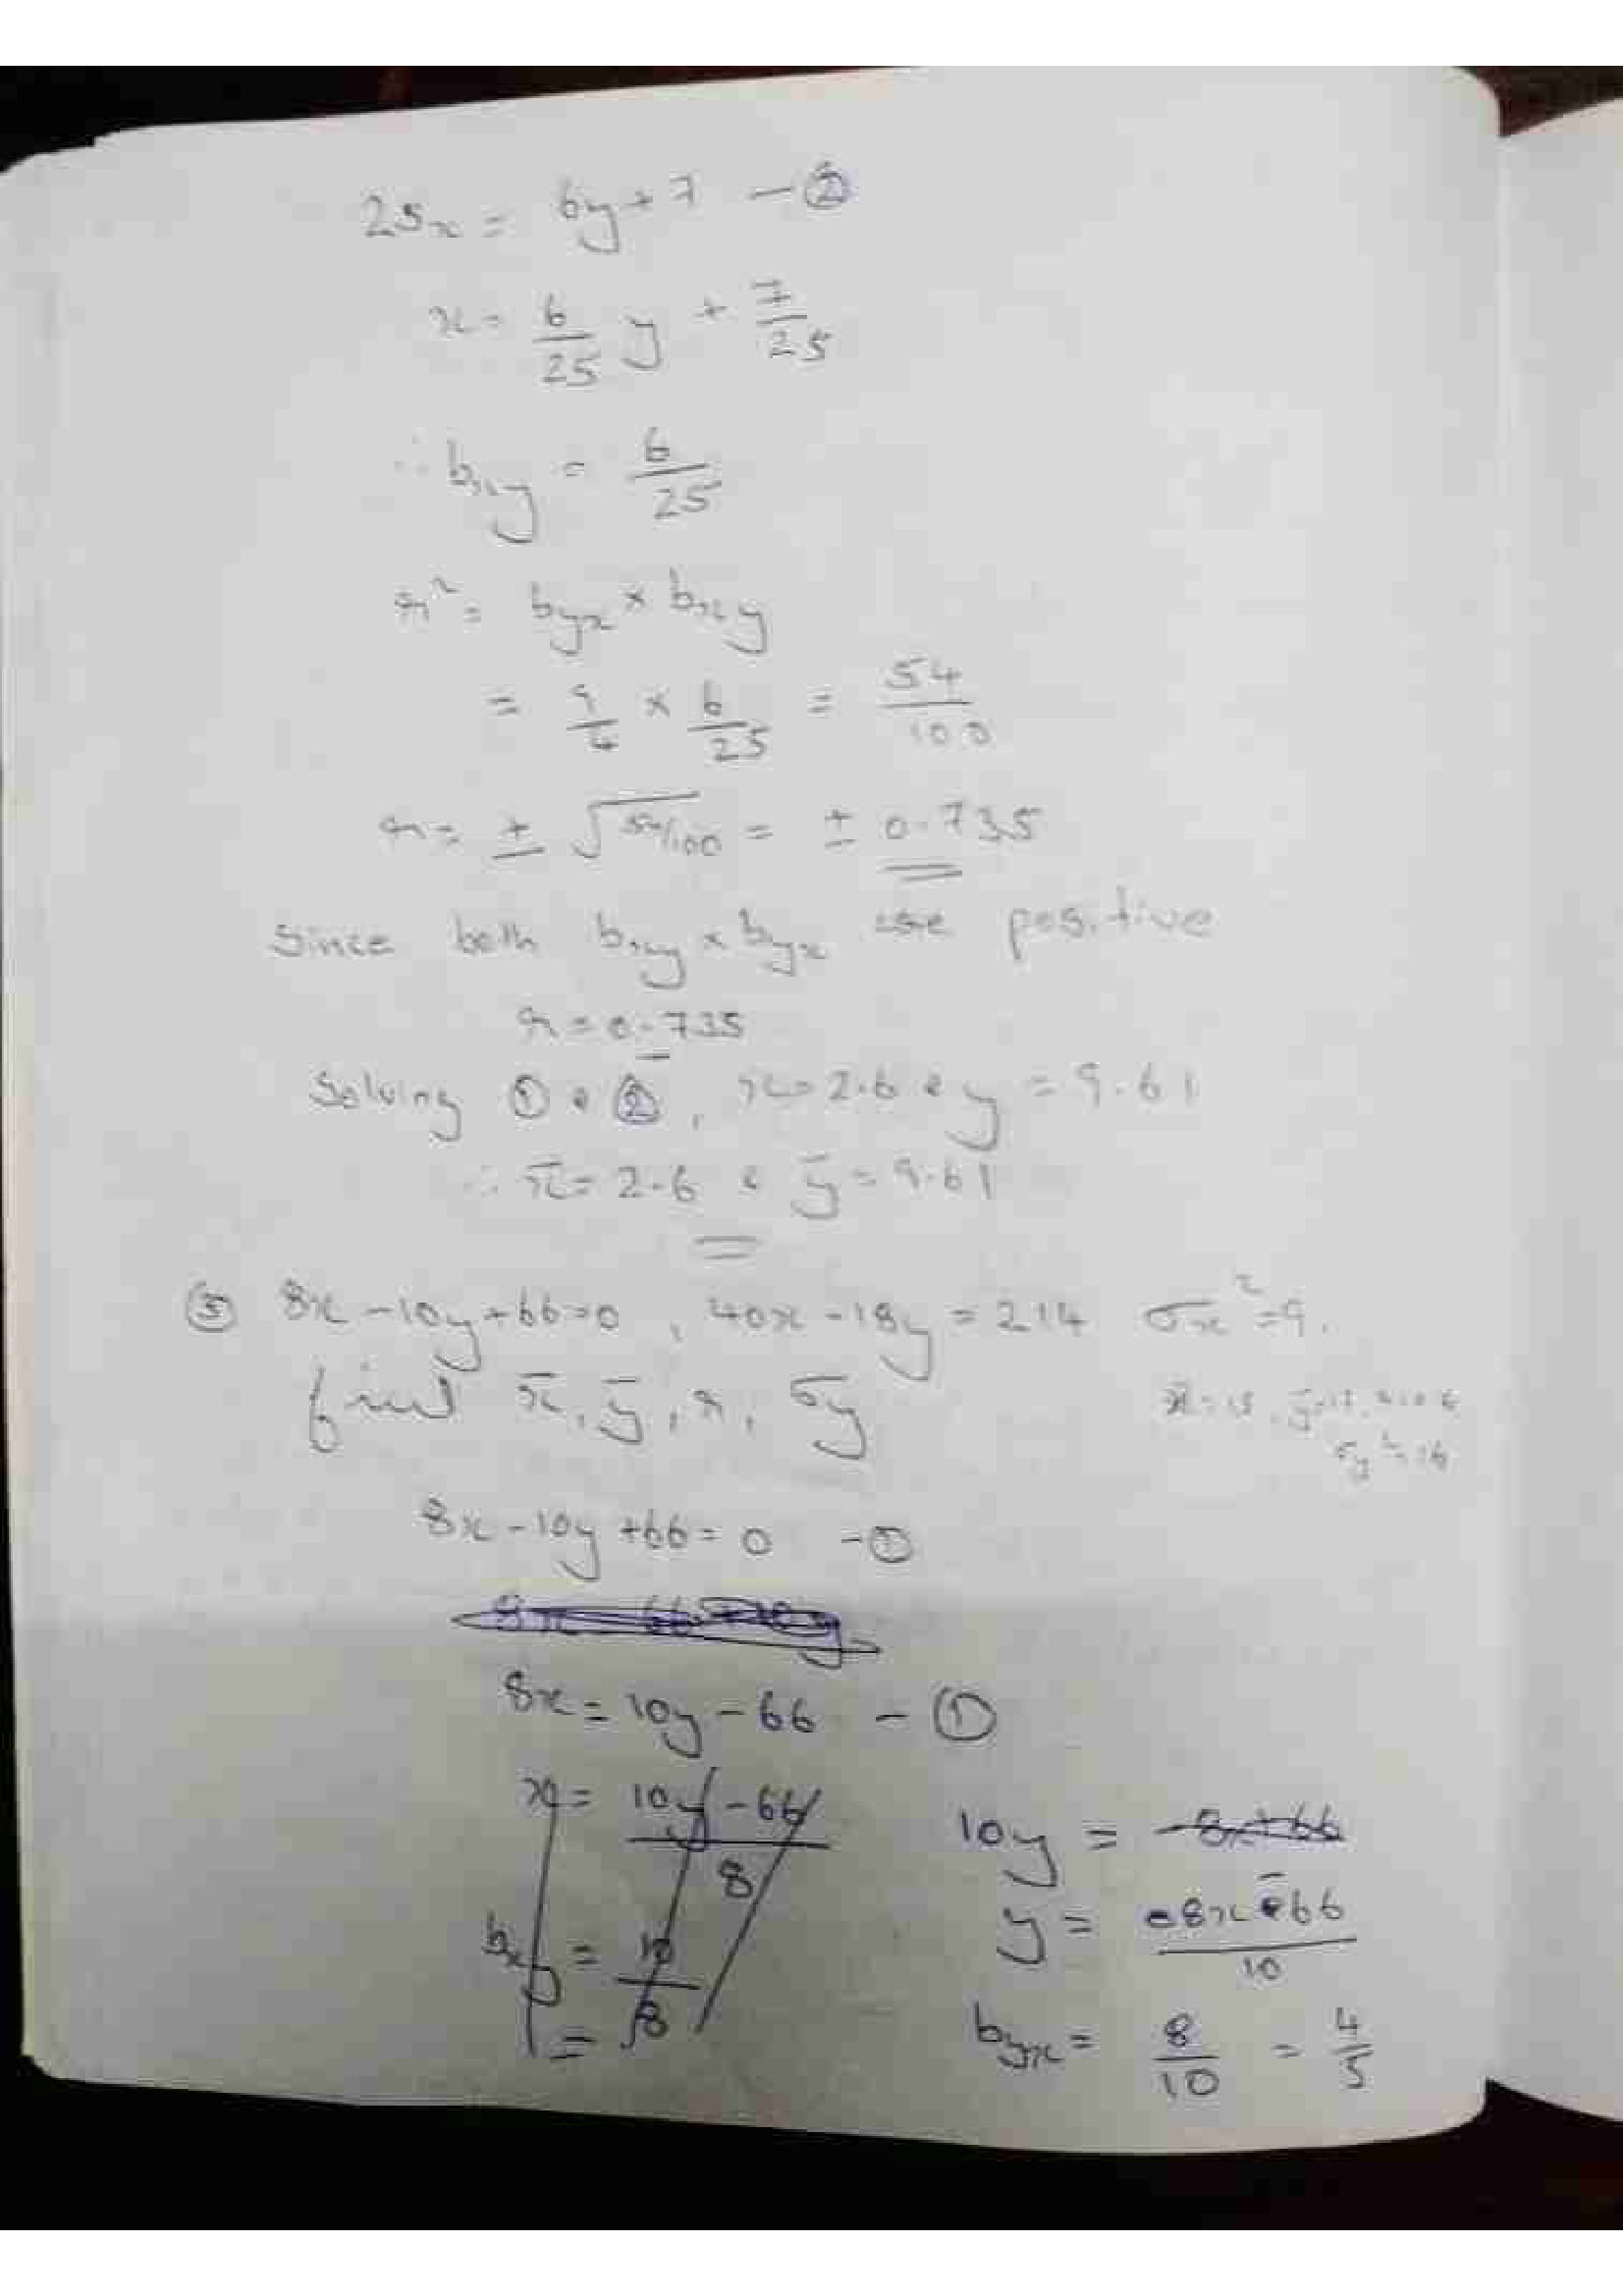 25x = 6y + 7 — ②
x = 6/25 y + 7/25
∴ bxy = 6/25
r² = byx × bxy
= 9/4 × 6/25 = 54/100
r = ± √54/100 = ± 0.735
Since both bxy × byx are positive
r = 0.735
Solving ① & ②, x = 2.6 & y = 9.61
∴ x̄ = 2.6 & ȳ = 9.61
③ 8x - 10y + 66 = 0, 40x - 18y = 214 σx² = 9.
find x̄, ȳ, r, σy
x̄ = 13, ȳ = 17, r = 0.6
σy² = 16
8x - 10y + 66 = 0 — ①
8x = 10y - 66 — ①
x = 10y - 66 / 8
bxy = 10/8
=
10y = -8x + 66
y = 8x - 66 / 10
byx = 8/10 = 4/5